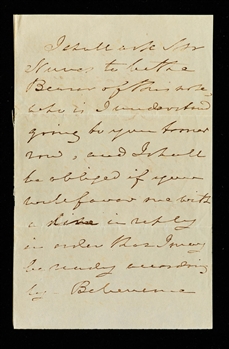 I shall ask Mr
to be the
Bearer of this note
who is I understand
going to your tomor
row, and I shall
be obliged if you
will favor me with
a line in reply
in order that I may
be ready according
ly - Believe me